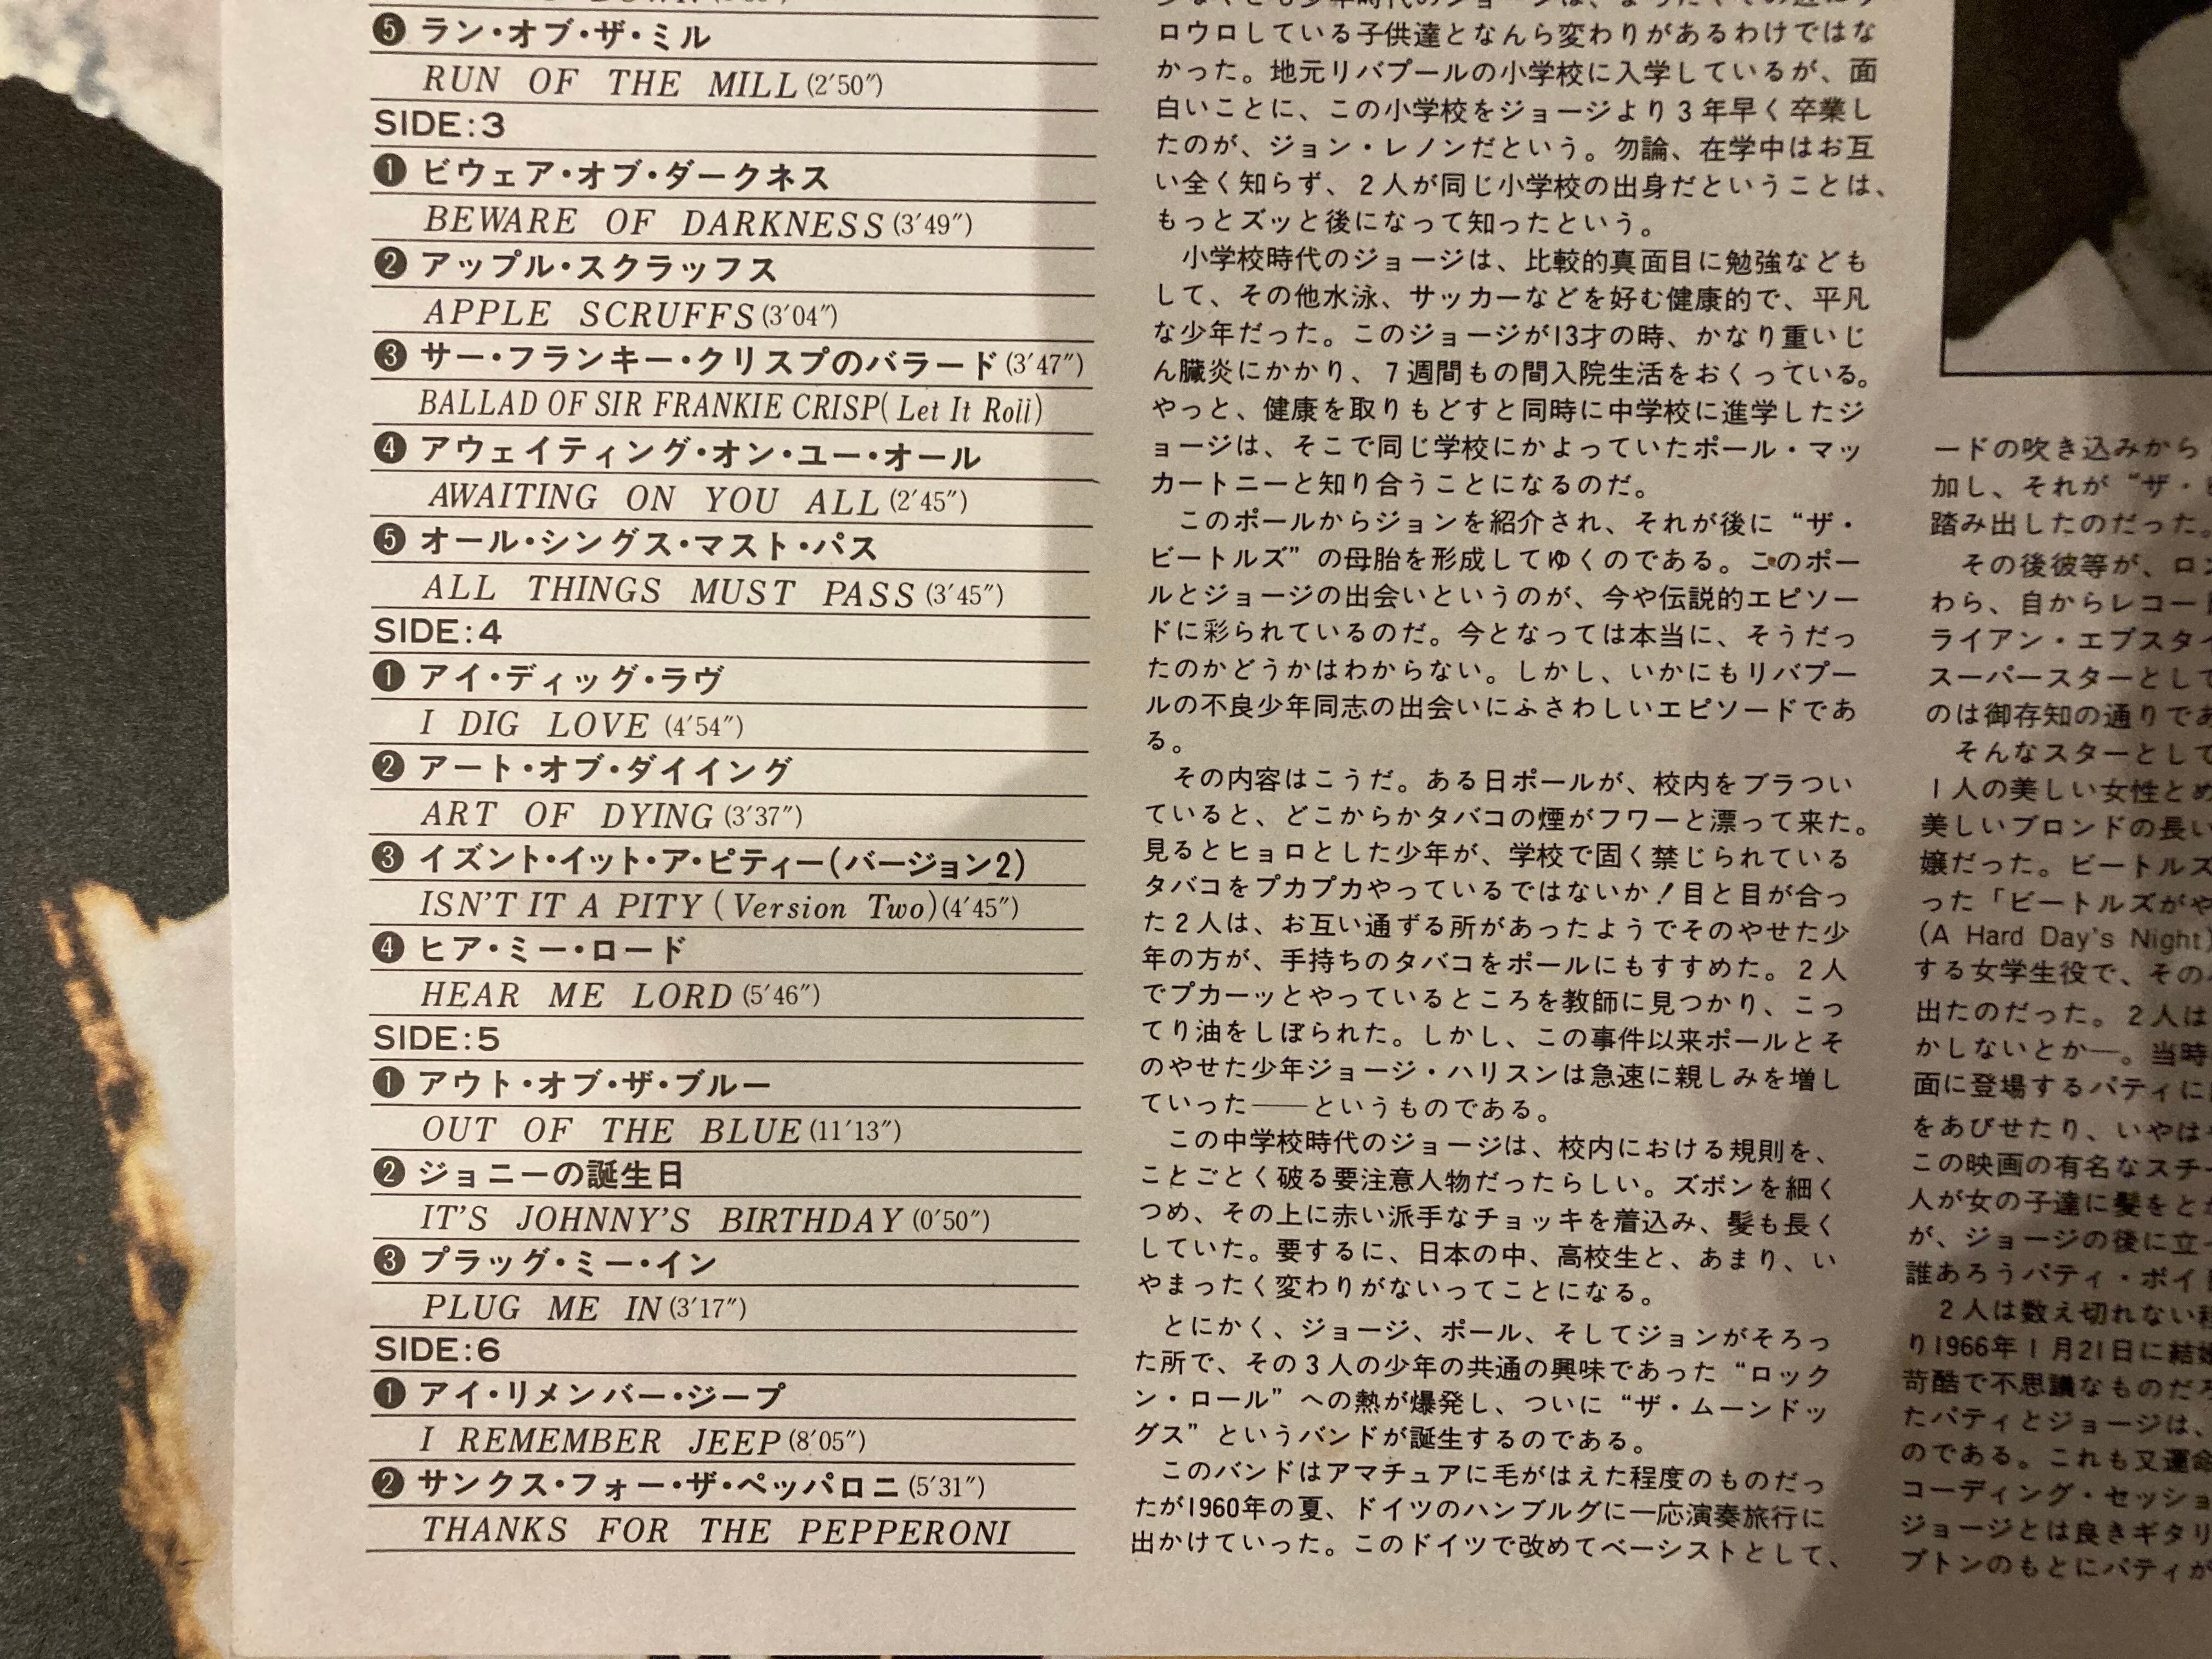 ⑤ ラン・オブ・ザ・ミル
RUN OF THE MILL (2′50″)
SIDE:3
❶ ビウェア・オブ・ダークネス
BEWARE OF DARKNESS (3′49″)
❷ アップル・スクラッフス
APPLE SCRUFFS (3′04″)
❸ サー・フランキー・クリスプのバラード (3′47″)
BALLAD OF SIR FRANKIE CRISP( Let It Roll)
❹ アウェイティング・オン・ユー・オール
AWAITING ON YOU ALL (2′45″)
❺ オール・シングス・マスト・パス
ALL THINGS MUST PASS (3′45″)
SIDE:4
❶ アイ・ディッグ・ラヴ
I DIG LOVE (4′54″)
❷ アート・オブ・ダイイング
ART OF DYING (3′37″)
❸ イズント・イット・ア・ピティー(バージョン2)
ISN'T IT A PITY ( Version Two) (4′45″)
❹ ヒア・ミー・ロード
HEAR ME LORD (5′46″)
SIDE:5
❶ アウト・オブ・ザ・ブルー
OUT OF THE BLUE (11′13″)
❷ ジョニーの誕生日
IT'S JOHNNY'S BIRTHDAY (0′50″)
❸ プラッグ・ミー・イン
PLUG ME IN (3′17″)
SIDE:6
❶ アイ・リメンバー・ジープ
I REMEMBER JEEP (8′05″)
❷ サンクス・フォー・ザ・ペッパロニ (5′31″)
THANKS FOR THE PEPPERONI
ロウロしている子供達となんら変わりがあるわけではな
かった。地元リバプールの小学校に入学しているが、面
白いことに、この小学校をジョージより3年早く卒業し
たのが、ジョン・レノンだという。勿論、在学中はお互
い全く知らず、2人が同じ小学校の出身だということは、
もっとズッと後になって知ったという。
小学校時代のジョージは、比較的真面目に勉強なども
して、その他水泳、サッカーなどを好む健康的で、平凡
な少年だった。このジョージが13才の時、かなり重いじ
ん臓炎にかかり、7週間もの間入院生活をおくっている。
やっと、健康を取りもどすと同時に中学校に進学したジ
ョージは、そこで同じ学校にかよっていたポール・マッ
カートニーと知り合うことになるのだ。
このポールからジョンを紹介され、それが後に“ザ・
ビートルズ”の母胎を形成してゆくのである。このポー
ルとジョージの出会いというのが、今や伝説的エピソー
ドに彩られているのだ。今となっては本当に、そうだっ
たのかどうかはわからない。しかし、いかにもリバプー
ルの不良少年同志の出会いにふさわしいエピソードであ
る。
その内容はこうだ。ある日ポールが、校内をブラつい
ていると、どこからかタバコの煙がフワーと漂って来た。
見るとヒョロとした少年が、学校で固く禁じられている
タバコをプカプカやっているではないか！目と目が合っ
た2人は、お互い通ずる所があったようでそのやせた少
年の方が、手持ちのタバコをポールにもすすめた。2人
でプカーッとやっているところを教師に見つかり、こっ
てり油をしぼられた。しかし、この事件以来ポールとそ
のやせた少年ジョージ・ハリスンは急速に親しみを増し
ていった――というものである。
この中学校時代のジョージは、校内における規則を、
ことごとく破る要注意人物だったらしい。ズボンを細く
つめ、その上に赤い派手なチョッキを着込み、髪も長く
していた。要するに、日本の中、高校生と、あまり、い
やまったく変わりがないってことになる。
とにかく、ジョージ、ポール、そしてジョンがそろっ
た所で、その3人の少年の共通の興味であった“ロック
ン・ロール”への熱が爆発し、ついに“ザ・ムーンドッ
グス”というバンドが誕生するのである。
このバンドはアマチュアに毛がはえた程度のものだっ
たが1960年の夏、ドイツのハンブルグに一応演奏旅行に
出かけていった。このドイツで改めてベーシストとして、
ードの吹き込みから
加し、それが“ザ・
踏み出したのだった。
その後彼等が、ロン
わら、自からレコー
ライアン・エプスタイ
スーパースターとして
のは御存知の通りであ
そんなスターとして
1人の美しい女性とめ
美しいブロンドの長い
嬢だった。ビートルズ
った「ビートルズがや
(A Hard Day's Night)
する女学生役で、その
出たのだった。2人は
かしないとか―。当時
面に登場するパティに
をあびせたり、いやは
この映画の有名なスチー
人が女の子達に髪をとか
が、ジョージの後に立っ
誰あろうパティ・ボイ
2人は数え切れない程
り1966年1月21日に結婚
苛酷で不思議なものだろ
たパティとジョージは、
のである。これも又運命
コーディング・セッショ
ジョージとは良きギタリ
プトンのもとにパティが